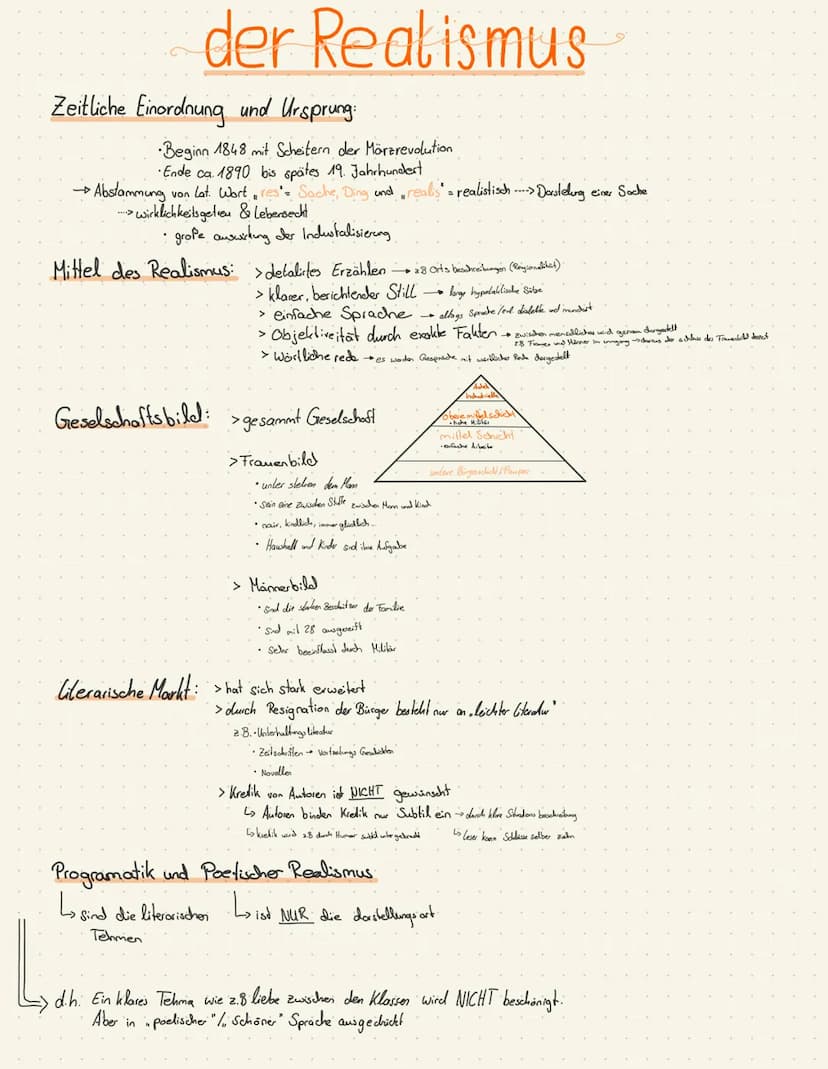 der Realismus
Zeitliche Einordnung und Ursprung:
·Beginn 1848 mit Scheitern der Märzrevolution
·Ende ca. 1890 bis spätes 19. Jahrhundert
→ Abstammung von Lat. Wort „res" = Sache, Ding und „realis" = realistisch ----> Darstelung einer Sache
···> wirklichkeitsgetreu & Lebensecht
· große auswirkung der Industalisierung
Mittel des Realismus: > detalirtes Erzählen → z8 Orts beschreibungen (Regionalität)
> klarer, berichtender Still → lange hypotaktische Sätze
> einfache Sprache → alltags Sprache/evt dialekte und mundart
> Objektiveität durch exakte Fakten → zwischen menschliches wird genau dargestellt
z8 Frauen und Männer im umgang → daraus der schluss des Frauenbild
> Wörtliche rede → es werden Gespräche mit wörtlicher Rede dargestellt
Geselschaftsbild: > gesammt Geselschaft
Adel
Industrielle
obere mittelschicht
mittel Schicht
untere Bürgerschicht/Pauper
> Frauenbild
· unter stehen dem Mann
· sein eine zwischen Stuffe zwischen Mann und Kind
· naiv, kindlich, immer glücklich...
· Haushalt und Kinder sind ihre Aufgabe
> Männerbild
· sind die starken Beschützer der Familie
· sind mit 28 ausgereift
· Sehr beeinflusst durch Militär
Literarische Markt: > hat sich stark erweitert
> durch Resignation der Bürger besteht nur an „leichter Literatur"
z.B. · Unterhaltungs literatur
· Zeitschriften → Vortsetzungs Geschichten
· Novellen
> Kretik von Autoren ist NICHT gewünscht
↳ Autoren binden Kredik nur Subtil ein → durch klare Situations beschreibung
↳ kretik wird z8 durch Humor subtil untergebracht ↳ Leser kann Schlüsse selber ziehn
Programatik und Poetischer Realismus
↳ sind die literarischen ↳ ist NUR die darstellungsart
Tehmen
d.h. Ein klares Tehma wie z.B liebe zwischen den Klassen wird NICHT beschönigt.
Aber in „poetischer"/„Schöner" Sprache ausgedrückt